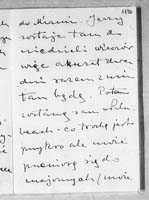 do Miami. Jerzy
zostaje tam do
niedzieli wieczór
więc akurat dwa
dni razem z nim
tam będę. Potem
zostanę sam w Palm
beach - co trochę jest
przykro ale może
przeniosę się do
znajomych / może